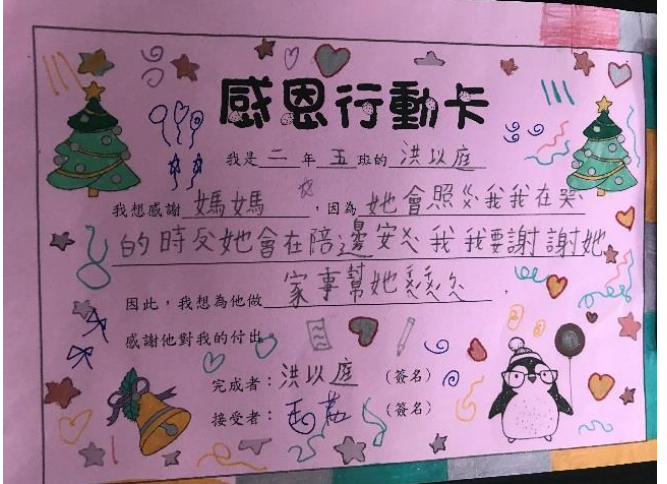 感恩行動卡
我是二年五班的洪以庭
我想感謝媽媽,因為她會照ㄍㄨˋ我我在哭
的時反她會在陪邊安ㄨㄟˋ我我要謝謝她
因此,我想為他做家事幫她
感謝他對我的付出。
完成者:洪以庭(簽名)
接受者:(簽名)